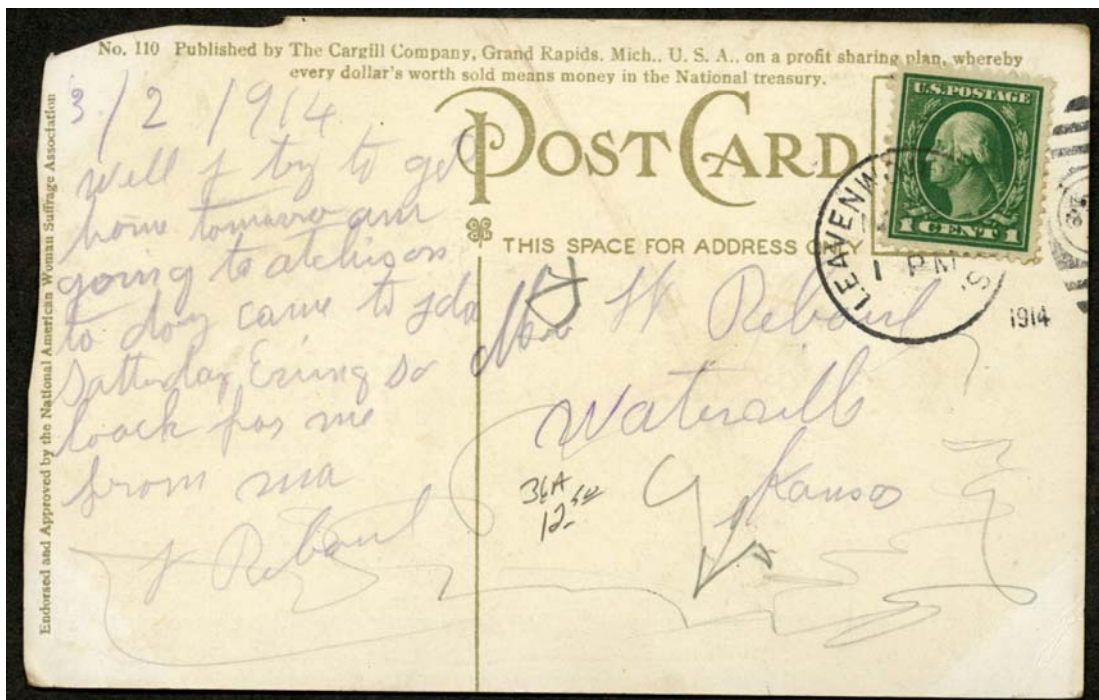 No. 110 Published by The Cargill Company, Grand Rapids, Mich., U. S. A., on a profit sharing plan, whereby
every dollar's worth sold means money in the National treasury.
Endorsed and Approved by the National American Woman Suffrage Association
POST CARD
THIS SPACE FOR ADDRESS ONLY
U.S. POSTAGE
1 CENT 1
LEAVENW
1 PM
S.
1914
3/2 1914
Well I try to get
home tomarro am
going to atchison
to day came to
Satturday Evning so
loock for me
from ma
Reboul
H Reboul
Waterville
Kansas
36A
12.50